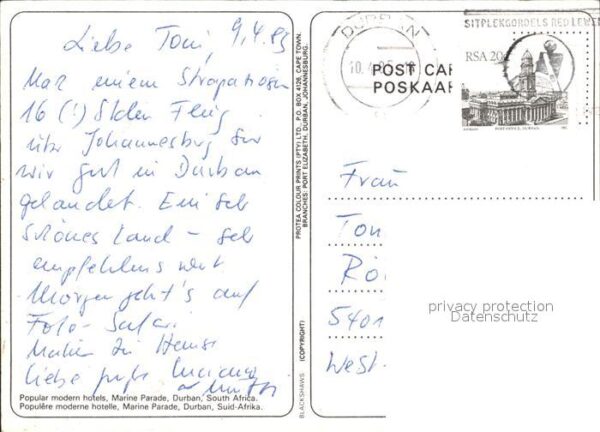 Liebe Toni, 9.4.85
Nach einem Strapatiösen
16 (!) Stden Flug
über Johannesburg sind
wir gut in Durban
gelandet. Ein sehr
schönes Land - sehr
empfehlenswert
Morgen geht's auf
Foto-Safari.
Liebe
Popular modern hotels, Marine Parade, Durban, South Africa.
Populêre moderne hotelle, Marine Parade, Durban, Suid-Afrika.
PROTEA COLOUR PRINTS (PTY) LTD., P.O. BOX 4126, CAPE TOWN.
BRANCHES: PORT ELIZABETH, DURBAN, JOHANNESBURG.
(COPYRIGHT)
BLACKSHAWS
DURBAN
SITPLEKGORDELS RED LEWE
RSA 20c
POST OFFICE, DURBAN
POST CAR
POSKAAR
Frau
Ton
5401
West-
privacy protection
Datenschutz